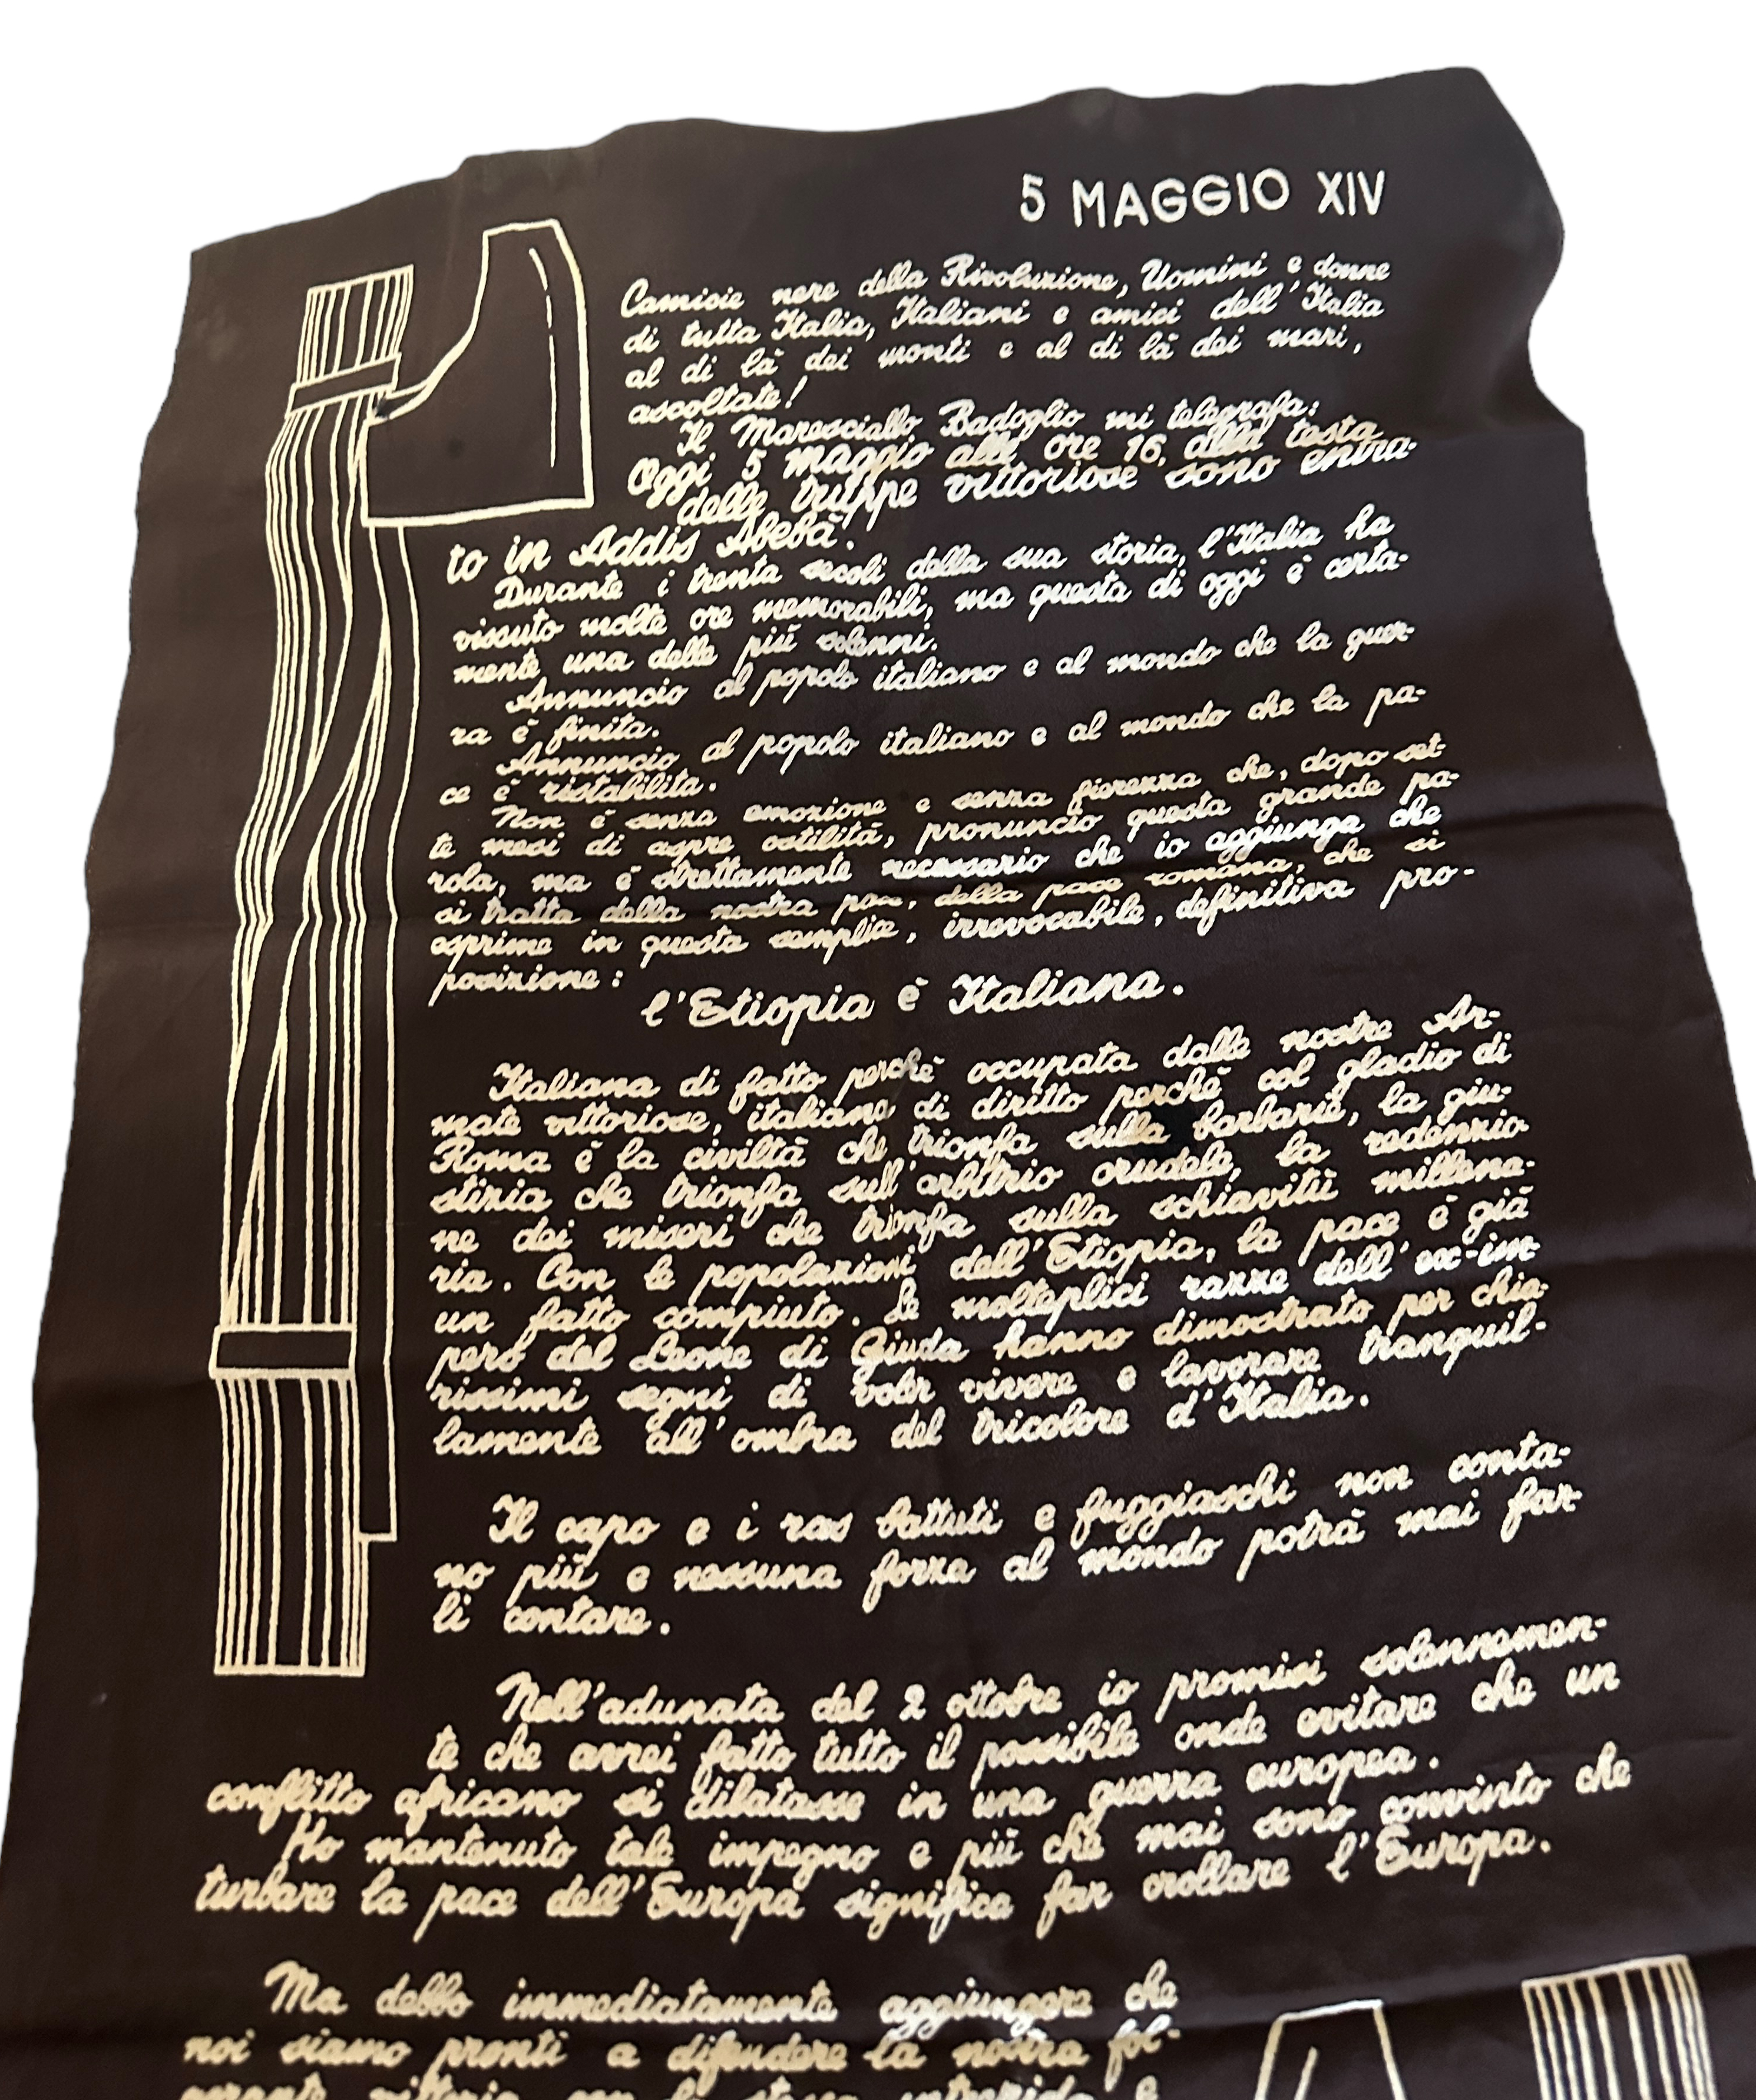 5 MAGGIO XIV
Camicie nere della Rivoluzione, Uomini e donne
di tutta Italia, Italiani e amici dell'Italia
al di là dei monti e al di là dei mari,
ascoltate!
Il Maresciallo Badoglio mi telegrafa:
Oggi 5 maggio alle ore 16, alla testa
delle truppe vittoriose sono entra-
to in Addis Abebà!
Durante i trenta secoli della sua storia, l'Italia ha
vissuto molte ore memorabili, ma questa di oggi è certa-
mente una delle più solenni.
Annuncio al popolo italiano e al mondo che la guer-
ra è finita.
Annuncio al popolo italiano e al mondo che la pa-
ce è ristabilita.
Non è senza emozione e senza fierezza che, dopo set-
te mesi di aspre ostilità, pronuncio questa grande pa-
rola, ma è strettamente necessario che io aggiunga che
si tratta della nostra pace, della pace romana, che si
esprime in questa semplice, irrevocabile, definitiva pro-
posizione:
l'Etiopia è Italiana.
Italiana di fatto perchè occupata dalle nostre Ar-
mate vittoriose, italiana di diritto perchè col gladio di
Roma è la civiltà che trionfa sulla barbarie, la giu-
stizia che trionfa sull'arbitrio crudele, la redenzio-
ne dei miseri che trionfa sulla schiavitù millena-
ria. Con le popolazioni dell'Etiopia, la pace è già
un fatto compiuto. Le molteplici razze dell'ex-im-
pero del Leone di Giuda hanno dimostrato per chia-
rissimi segni di voler vivere e lavorare tranquil-
lamente all'ombra del tricolore d'Italia.
Il capo e i ras battuti e fuggiaschi non conta-
no più e nessuna forza al mondo potrà mai far-
li contare.
Nell'adunata del 2 ottobre io promisi solennemen-
te che avrei fatto tutto il possibile onde evitare che un
conflitto africano si dilatasse in una guerra europea.
Ho mantenuto tale impegno e più che mai sono convinto che
turbare la pace dell'Europa significa far crollare l'Europa.
Ma debbo immediatamente aggiungere che
noi siamo pronti a difendere la nostra fol-